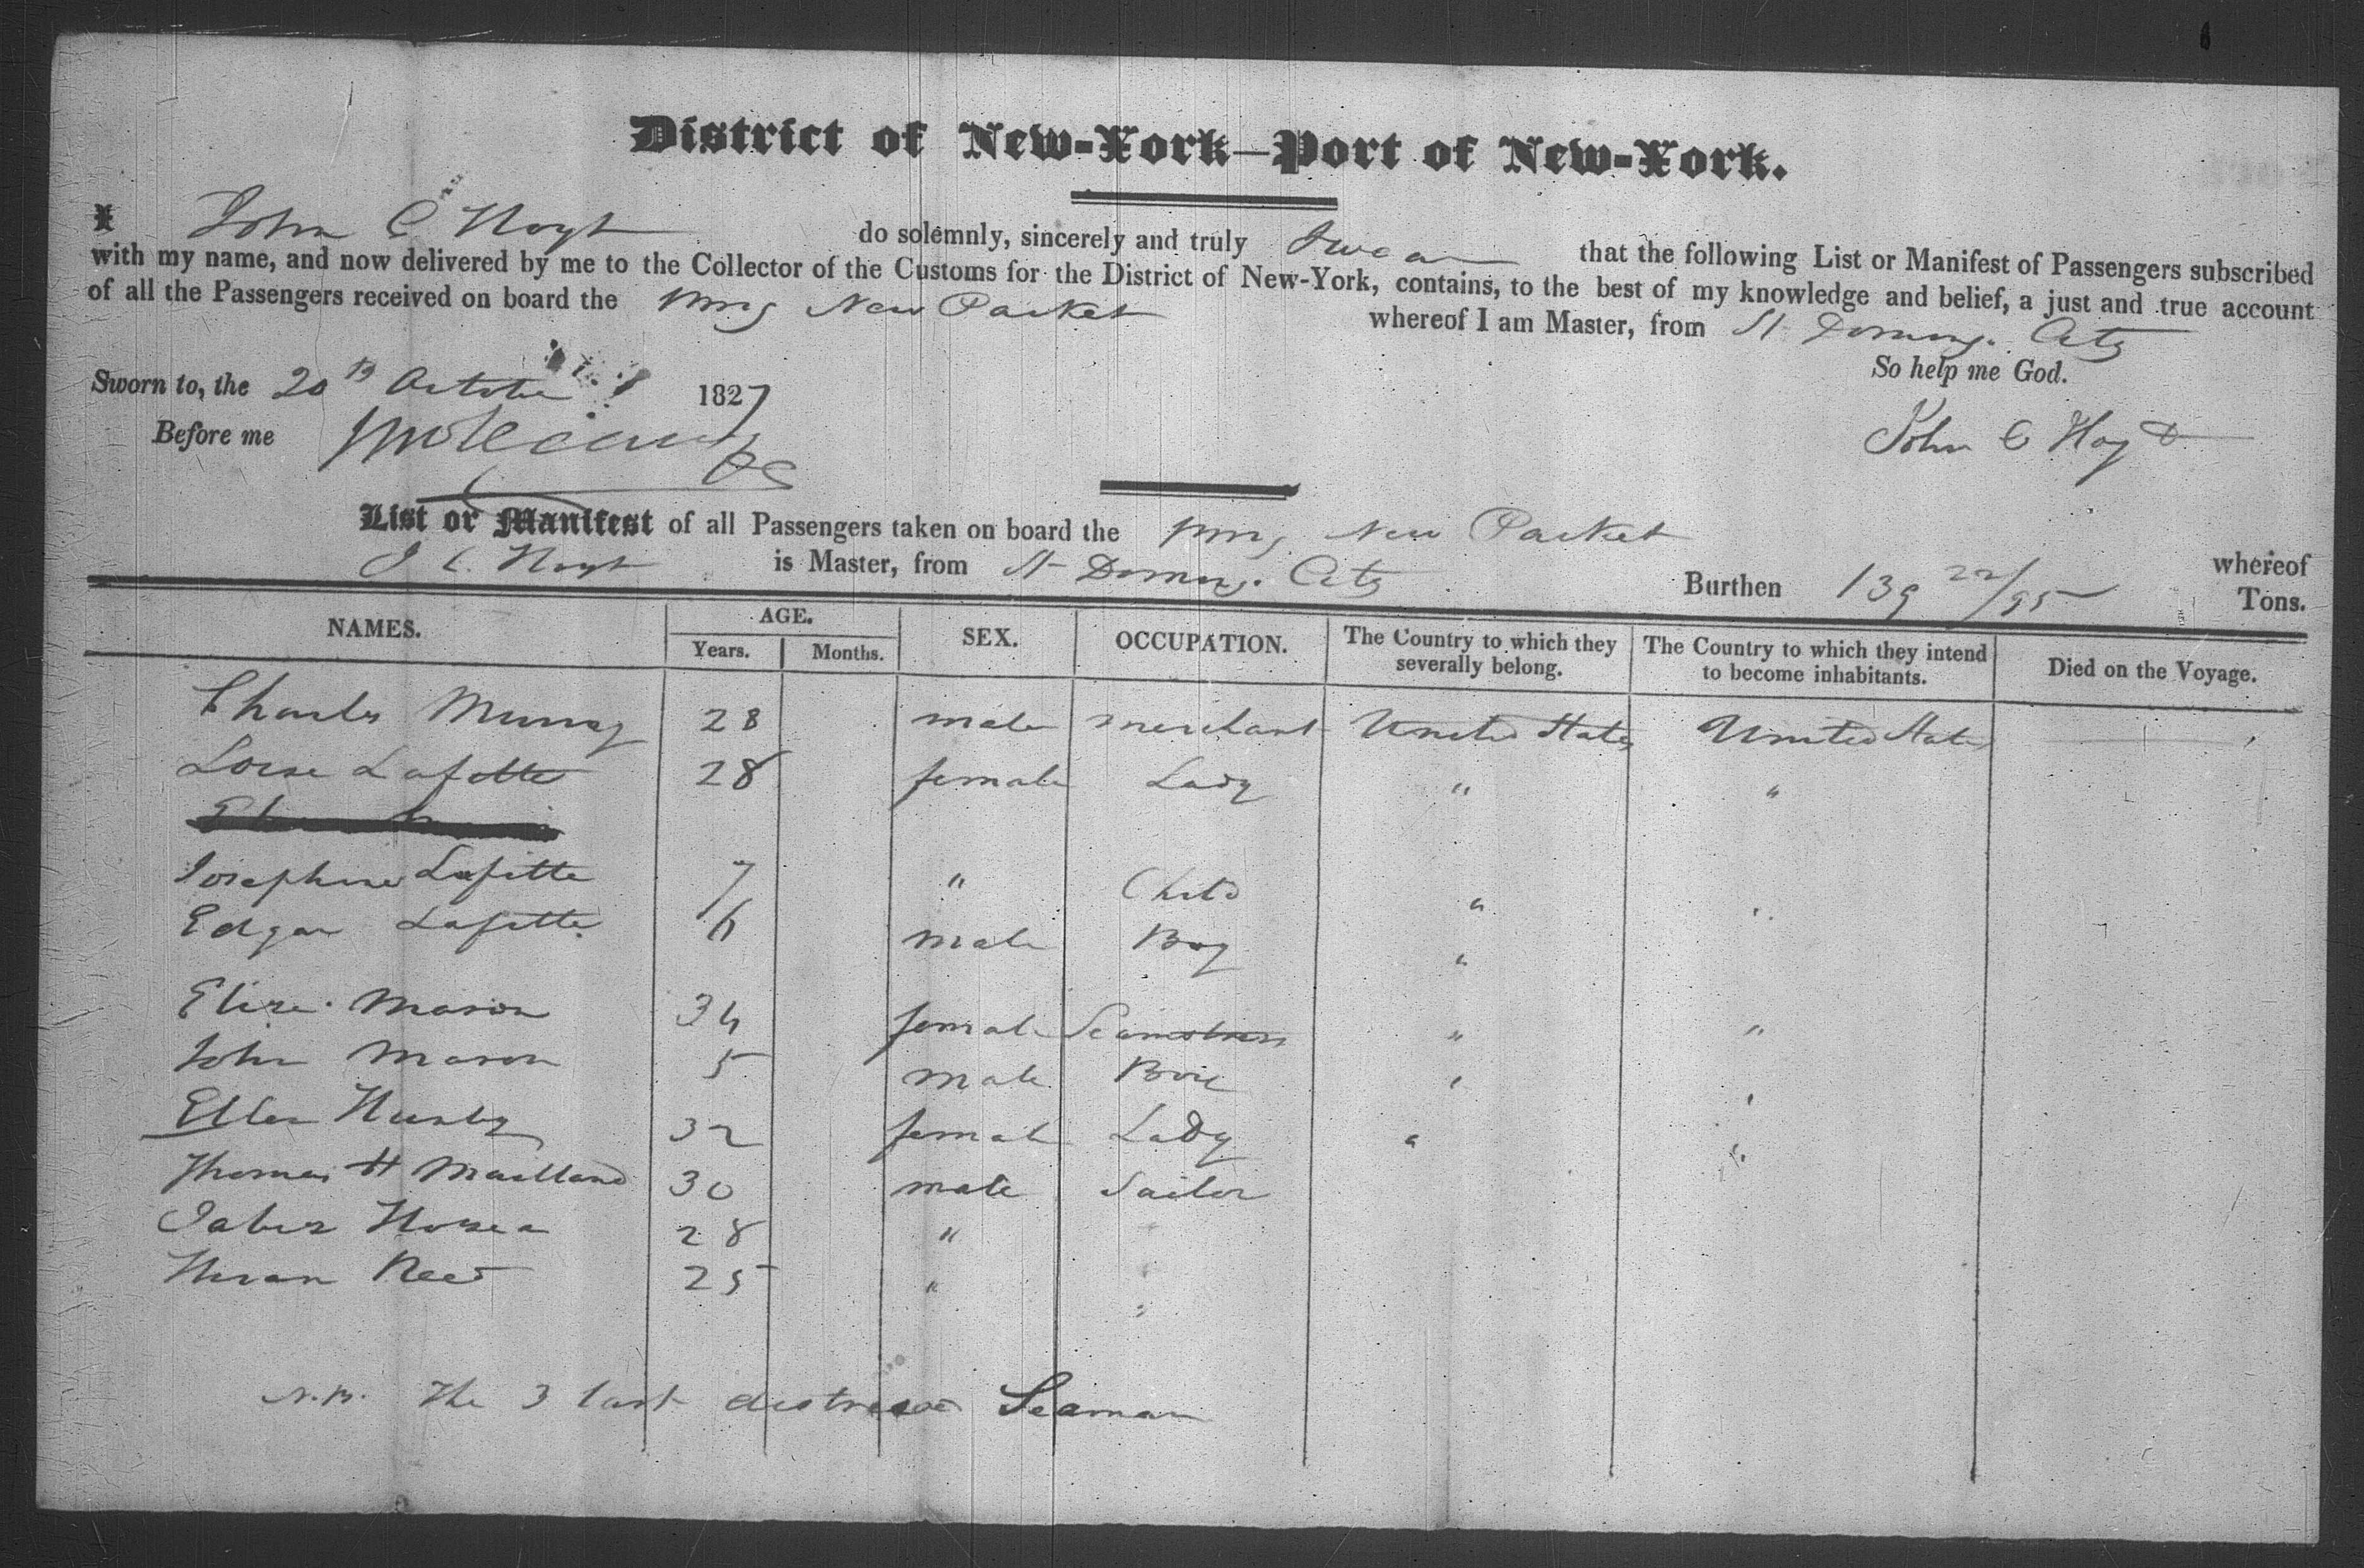 District of New-York—Port of New-York.
I John C Hoyt do solemnly, sincerely and truly Swear that the following List or Manifest of Passengers subscribed
with my name, and now delivered by me to the Collector of the Customs for the District of New-York, contains, to the best of my knowledge and belief, a just and true account
of all the Passengers received on board the Brig New Packet whereof I am Master, from St Domingo City
So help me God.
Sworn to, the 20th October 1827
Before me
John C Hoyt
List or Manifest of all Passengers taken on board the Brig New Packet whereof
J C. Hoyt is Master, from St Domingo City Burthen 139 22/95 Tons.
NAMES. AGE. Years. Months. SEX. OCCUPATION. The Country to which they severally belong. The Country to which they intend to become inhabitants. Died on the Voyage.
Charles Murray 28 male merchant United States United States
Lafitte 28 female Lady " "
Josephine Lafitte 7 " Child " "
Edgar Lafitte 6 male Boy "
Eliza Mason 34 female Seamstress " "
John Mason 5 male " "
Ellen 32 female Lady " "
Thomas H Maitland 30 male Sailor
Jabez Hosea 28 "
Hiram Reed 25 " "
N.B. The 3 last distressed Seaman